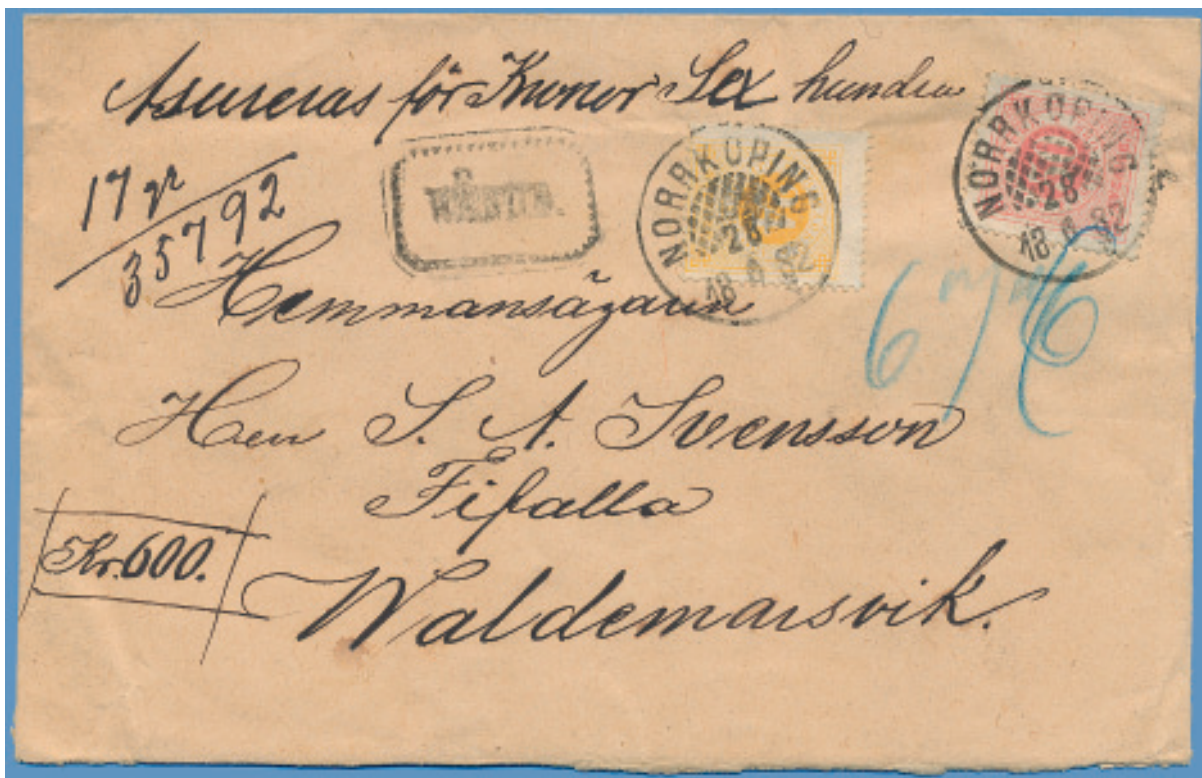 Assureras för Kronor Sex hundra
17 gr
35792
WÄRDE.
NORRKÖPING
26
18 6 82
NORRKÖPING
26
18 6 82
Hemmansägaren
Herr S. A. Svensson
Fifalla
Kr. 600.
Waldemarsvik.